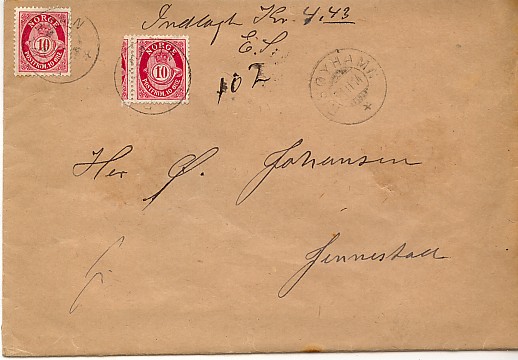 Indlagt Kr. 4,43
E. S.
NORGE
10
POSTFRIM. 10 ØRE
NORGE
10
POSTFRIM. 10 ØRE
102
Her Ø. Johansen
Jennestad